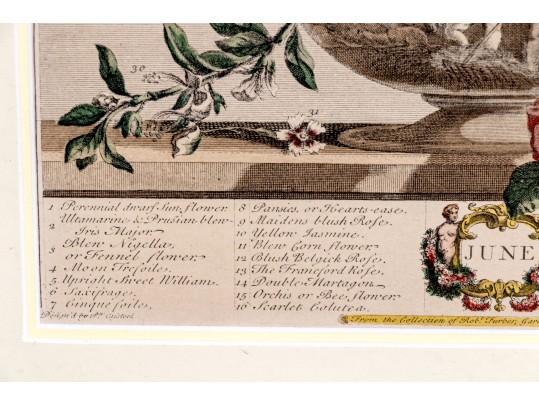 30
31
1 Perennial dwarf Sun flower
2 Ultamarine & Prusian blew
Iris Major
3 Blew Nigella,
or Fennel flower
4 Moon Trefoile
5 Upright Sweet William
6 Saxifrage
7 Cinque foile
8 Pansies, or Hearts-ease
9 Maidens blush Rose
10 Yellow Jasmine
11 Blew Corn flower
12 Blush Belgick Rose
13 The Francford Rose
14 Double Martagon
15 Orchis or Bee flower
16 Scarlet Colutea
Design'd by Pr. Casteel
JUNE
From the Collection of Robt. Furber, Gar